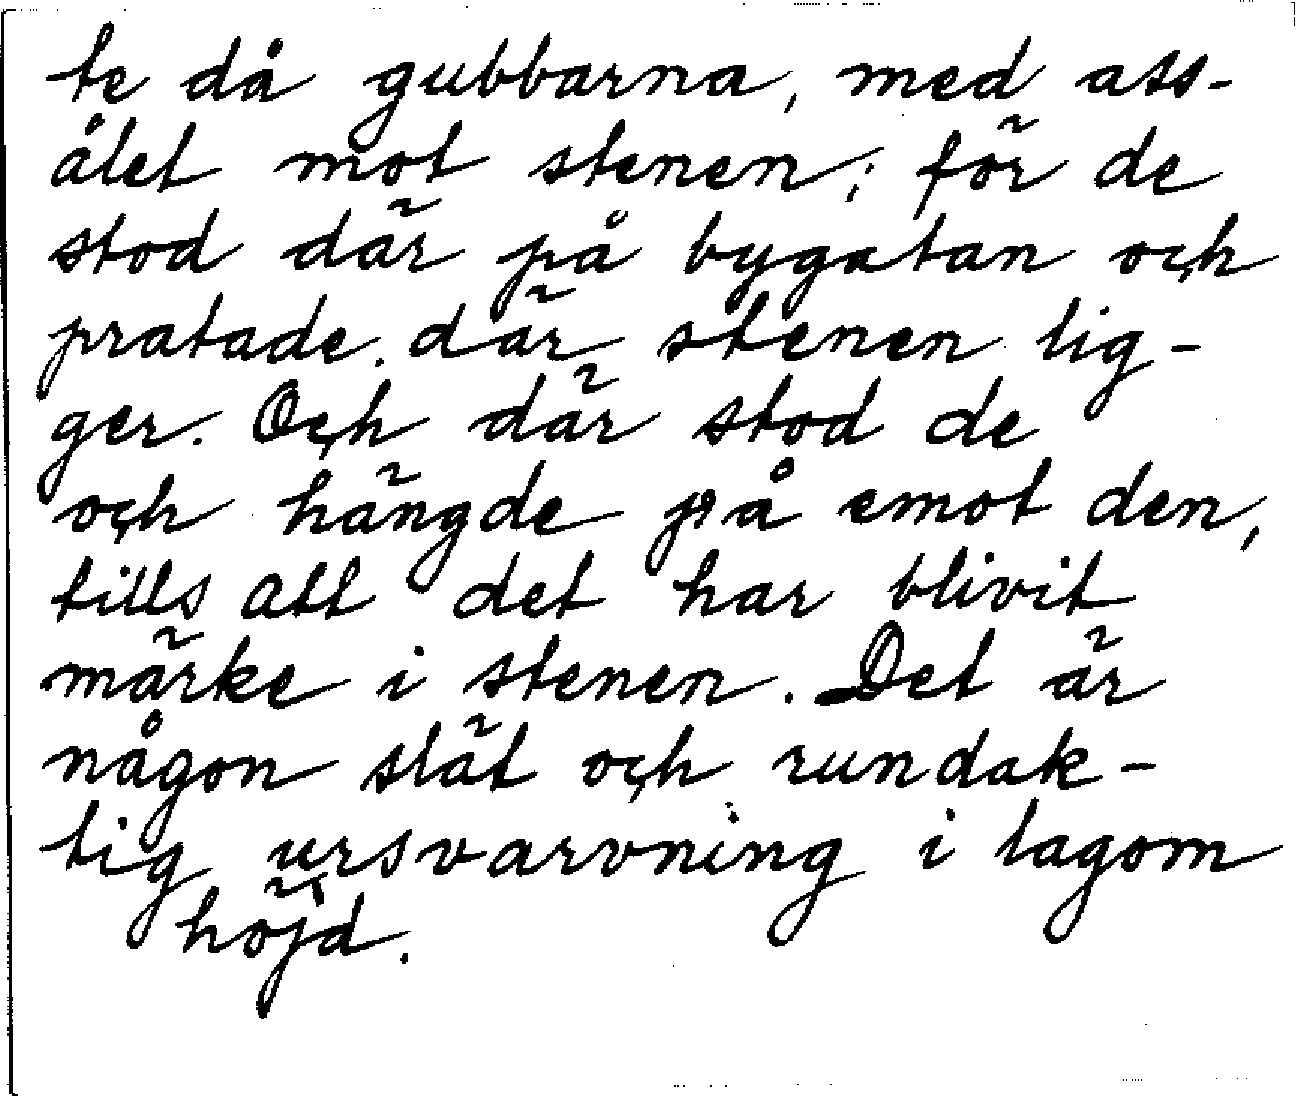 te då gubbarna, med ass-
ålet mot stenen; för de
stod där på bygatan och
pratade. där stenen lig-
ger. Och där stod de
och hängde på emot den,
tills att det har blivit
märke i stenen. Det är
någon slät och rundak-
tig ursvarvning i lagom
höjd.